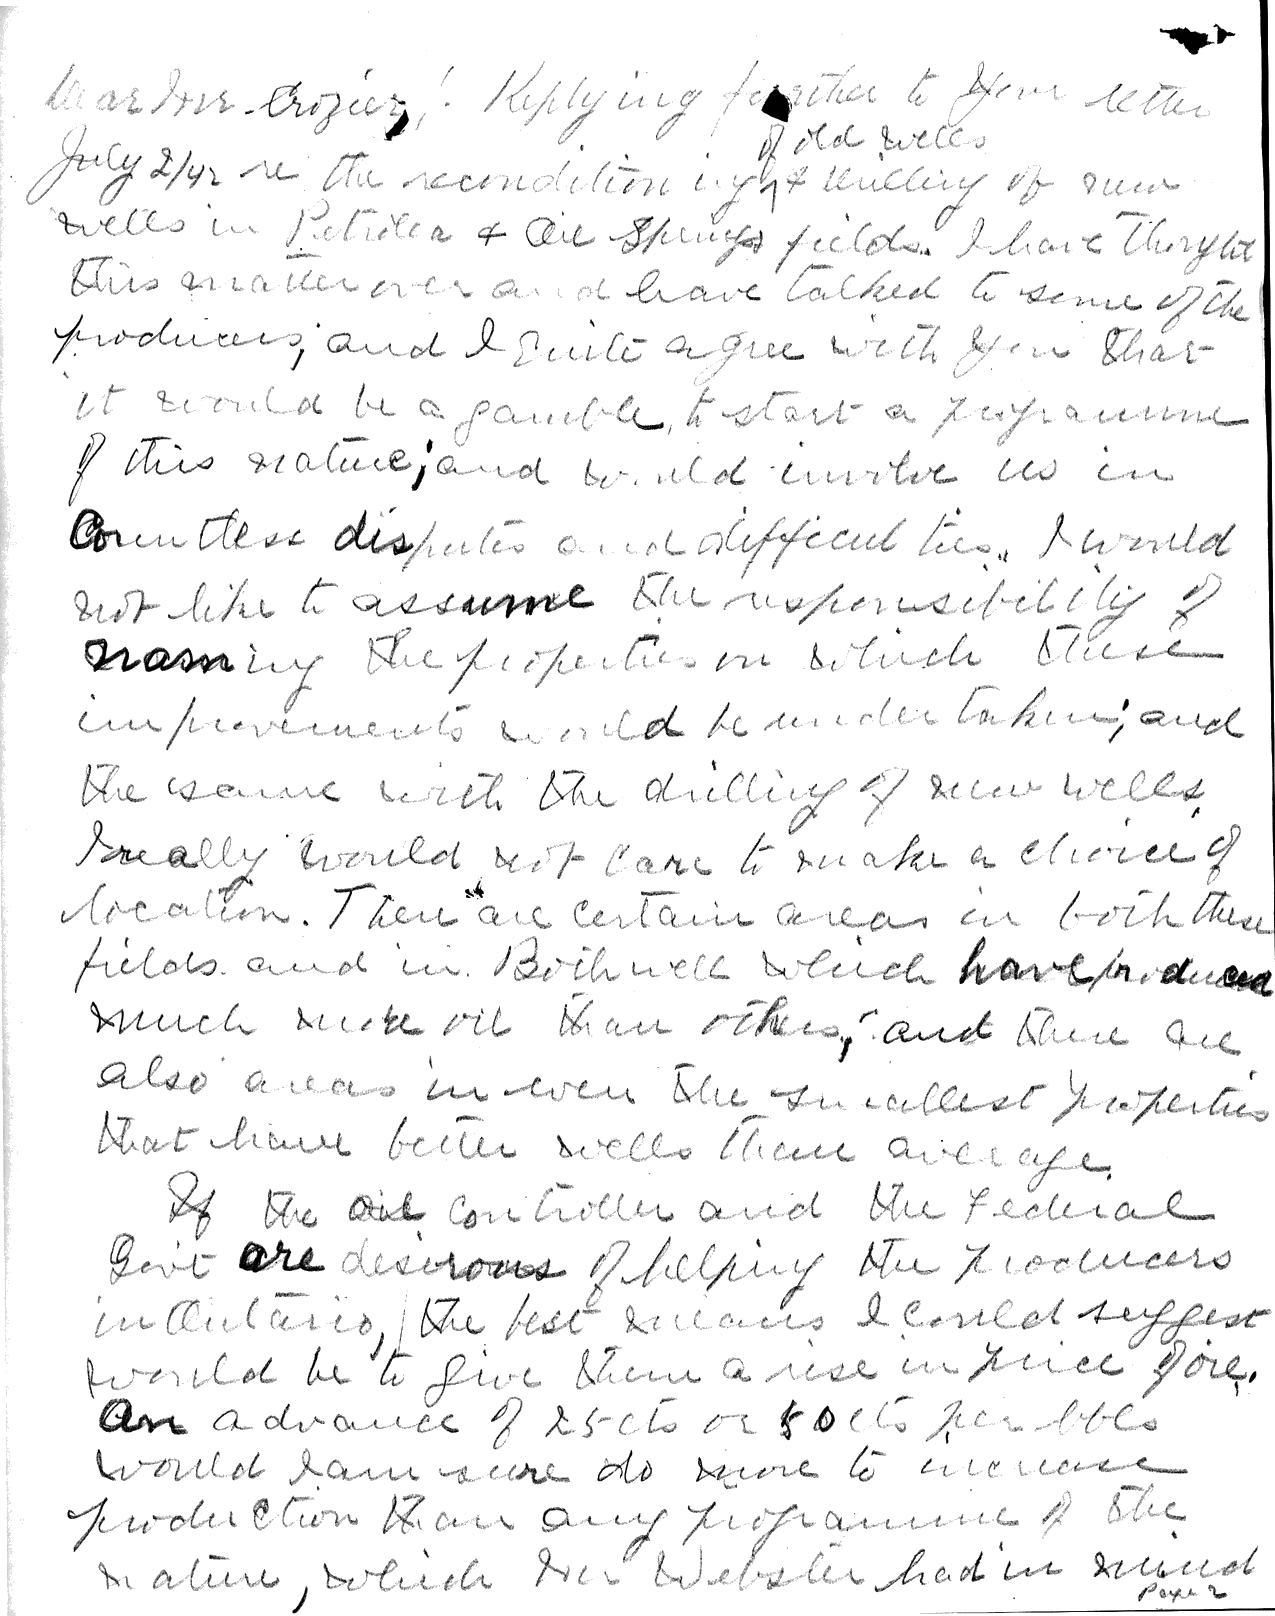 Dear Mr. Crozier,! Replying further to your letter
of old wells
July 2/42 re the reconditioning & drilling of new
wells in Petrolea & Oil Springs fields. I have thought
this matter over and have talked to some of the
producers; and I quite agree with you that
it would be a gamble, to start a programme
of this nature; and would involve us in
Countless disputes and difficulties. I would
not like to assume the responsibility of
naming the properties on which these
improvements would be undertaken; and
the same with the drilling of new wells.
I really would not care to make a choice of
location. There are certain areas in both these
fields. and in. Bothwell which have produced
much more oil than others; and there are
also areas in even the smallest properties
that have better wells than average.
If the oil controller and the Federal
Govt are desirous of helping the producers
in Ontario, the best means I could suggest
would be to give them a rise in price of oil.
An advance of 25cts or 50cts per bbls
would I am sure do more to increase
production than any programme of the
nature, which Mr Webster had in mind
Page 2